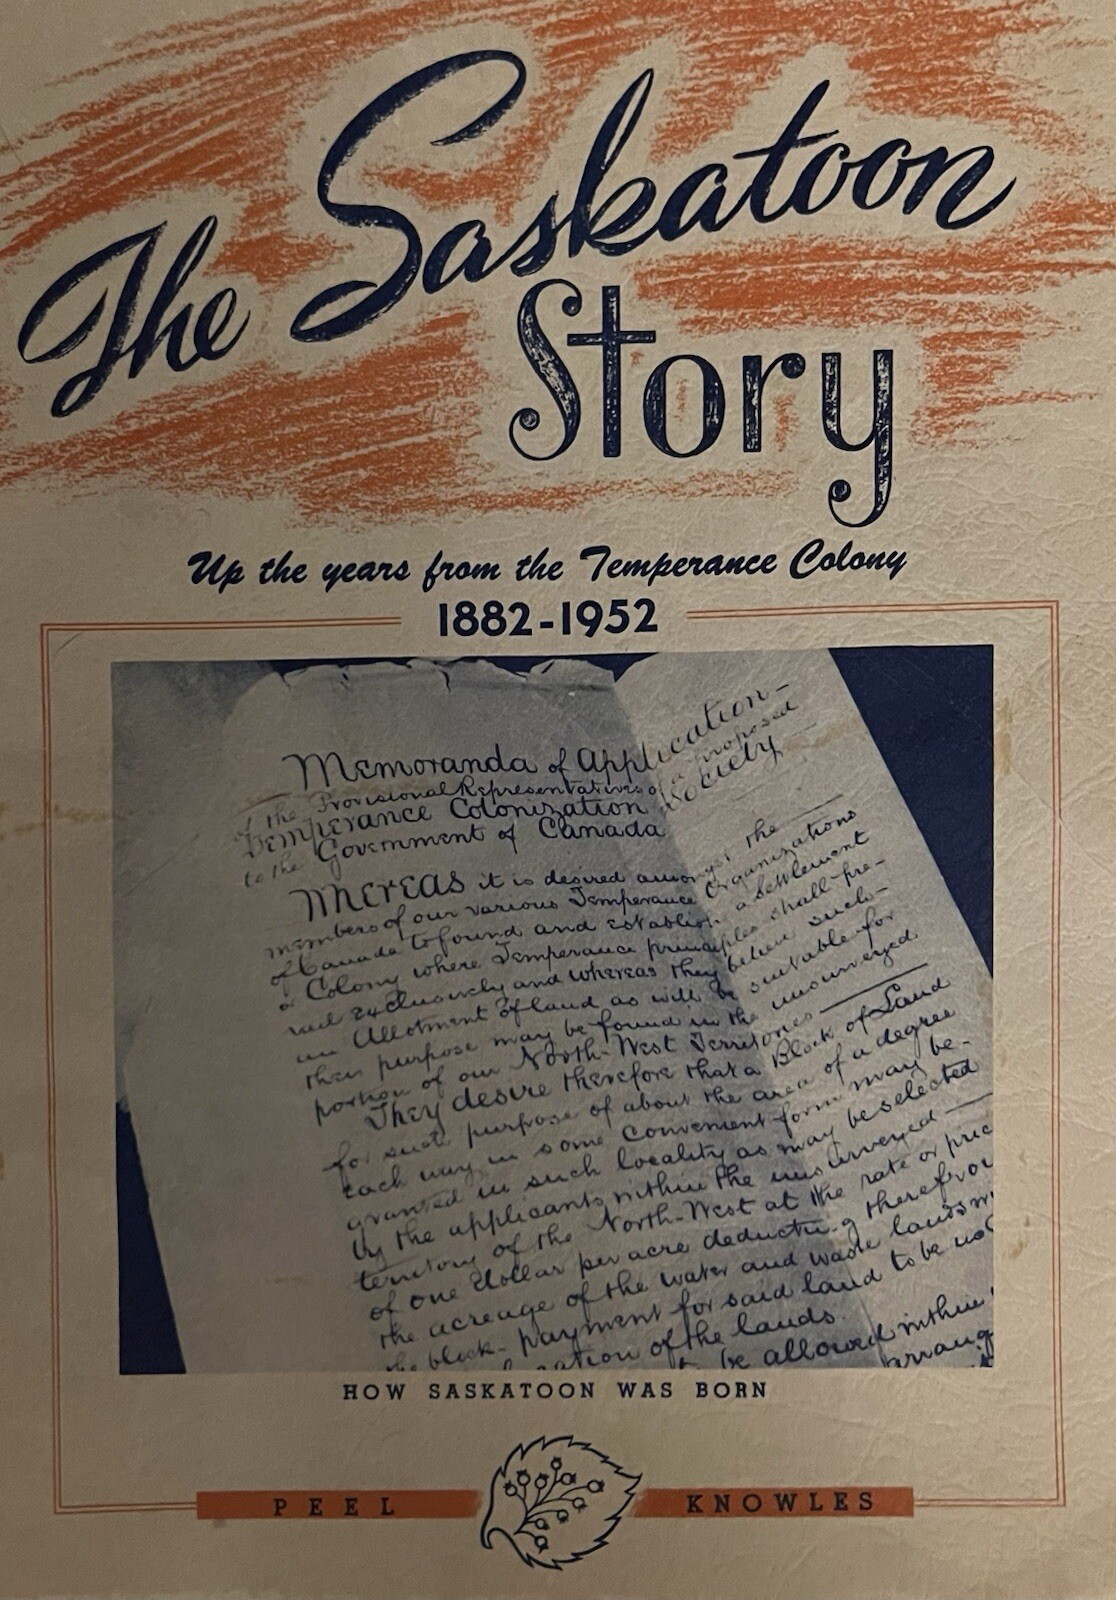 The Saskatoon
Story
Up the years from the Temperance Colony
1882-1952
Memoranda of Application-
of the Provisional Representatives of a proposed
Temperance Colonization Society
to the Government of Canada
Whereas it is desired amongst the
members of our various Temperance Organizations
of Canada to found and establish a settlement
or Colony where Temperance principles shall pre-
vail exclusively and whereas they believe such
an Allotment of land as will be suitable for
their purpose may be found in the unsurveyed
portion of our North-West Territories
They desire therefore that a Block of Land
for such purpose of about the area of a degree
each way in some convenient form may be-
granted in such locality as may be selected
by the applicants within the unsurveyed
territory of the North-West at the rate or pric
of one dollar per acre deducting therefro
the acreage of the water and waste lands
the block- payment for said land to be
of the lands.
be allowed within
arrang
HOW SASKATOON WAS BORN
PEEL KNOWLES